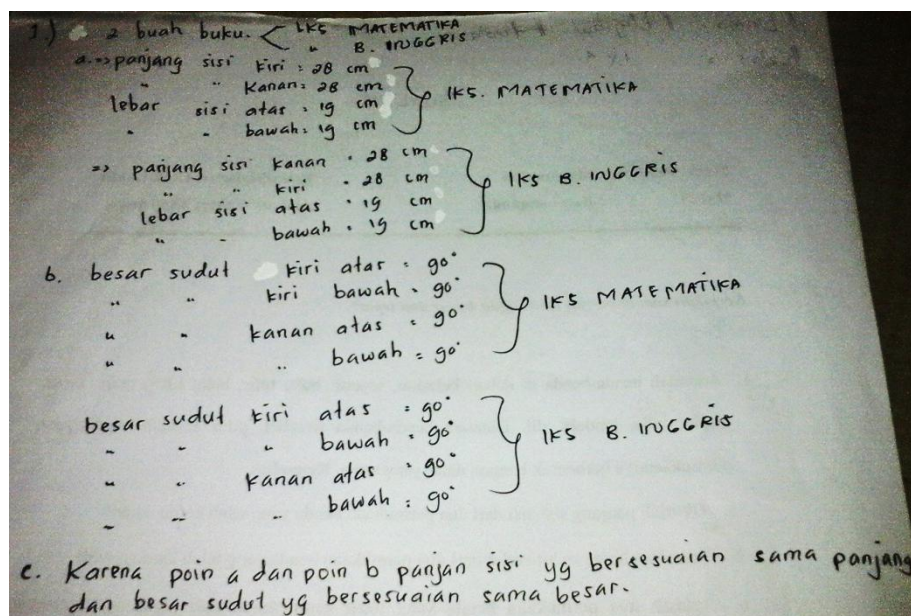 1.) 2 buah buku. < LKS MATEMATIKA
" B. INGGRIS
a. => panjang sisi kiri : 28 cm
" " kanan : 28 cm
lebar sisi atas : 19 cm
" " bawah : 19 cm
} lKS. MATEMATIKA
=> panjang sisi kanan : 28 cm
" " kiri : 28 cm
lebar sisi atas : 19 cm
" " bawah : 19 cm
} lKS B. INGGRIS
b. besar sudut kiri atas : 90°
" " kiri bawah : 90°
" " kanan atas : 90°
" " " bawah = 90°
} lKS MATEMATIKA
besar sudut kiri atas : 90°
" " " bawah : 90°
" " kanan atas : 90°
" " " bawah : 90°
} lKS B. INGGRIS
c. Karena poin a dan poin b panjan sisi yg bersesuaian sama panjang
dan besar sudut yg bersesuaian sama besar.